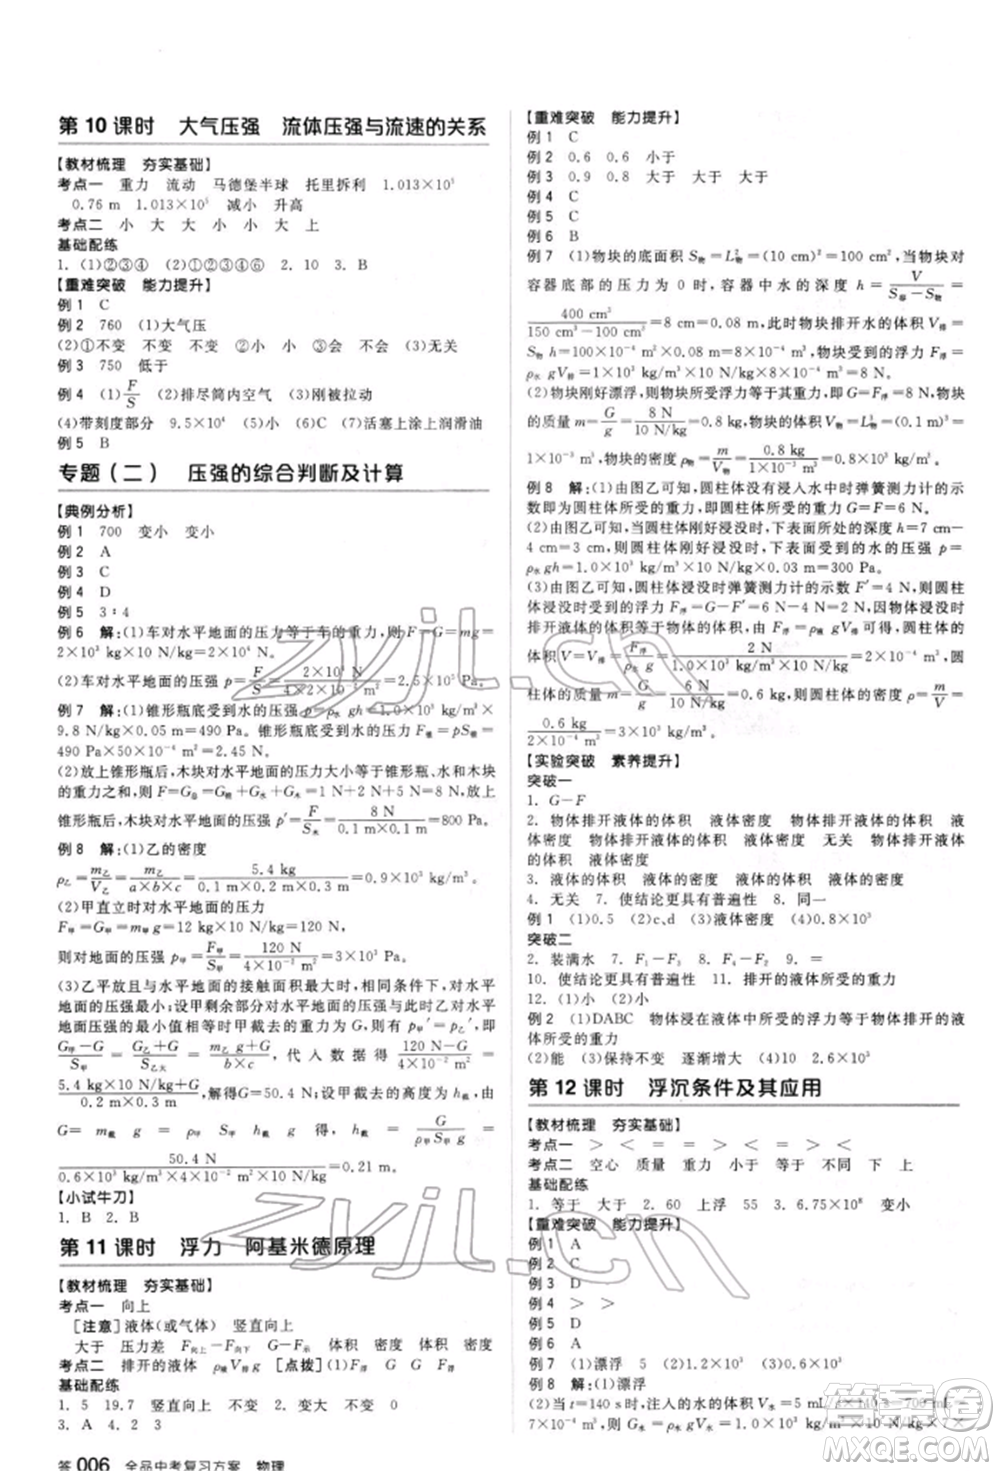 第 10 课时　大气压强　流体压强与流速的关系
【教材梳理　夯实基础】
考点一　重力　流动　马德堡半球　托里拆利　1.013×10⁵
0.76 m　1.013×10⁵　减小　升高
考点二　小　大　大　小　小　大　上
基础配练
1. (1)②③④　(2)①②③④⑥　2. 10　3. B
【重难突破　能力提升】
例 1　C
例 2　760　(1)大气压
(2)①不变　不变　不变　②变小　③变大　④无关
例 3　750　低于
例 4　(1)F/S　(2)排尽筒内空气　(3)刚被拉动
(4)带刻度部分　9.5×10⁴　(6)C　(7)活塞上涂上润滑油
例 5　B
专题(二)　压强的综合判断及计算
【典例分析】
例 1　700　变小　变小
例 2　A
例 3　C
例 4　D
例 5　3∶4
例 6　解:(1)车对水平地面的压力等于车的重力,则 F=G=mg=
2×10³ kg×10 N/kg=2×10⁴ N。
(2)车对水平地面的压强 p=F/S=2×10⁴ N/(4×2×10⁻² m²)=2.5×10⁵ Pa。
例 7　解:(1)锥形瓶底受到水的压强
9.8 N/kg×0.05 m=490 Pa,锥形瓶底受到水的压力 F瓶=pS瓶=
490 Pa×50×10⁻⁴ m²=2.45 N。
(2)放上锥形瓶后,木块对水平地面的压力大小等于锥形瓶、水和木块
的总重力,
锥形瓶后,木块对水平地面的压强 p′=F/S木=8 N/(0.1 m×0.1 m)=800 Pa。
例 8　解:(1)乙的密度
ρ乙=m乙/V乙=m乙/(a×b×c)=5.4 kg/(0.1 m×0.2 m×0.3 m)=0.9×10³ kg/m³。
(2)甲直立时对水平地面的压力
F甲=G甲=m甲g=12 kg×10 N/kg=120 N,
则甲对水平地面的压强 p甲=F甲/S甲=120 N/(4×10⁻² m²)=3 000 Pa。
(3)乙平放且与水平地面的接触面积最大时,相同条件下对水平地面的
压强最小。设甲剩余部分对水平地面的压强与乙对水平地面
的压强的最小值相等时甲截去的重力为 G,则有 p甲′=p乙′,即
(G甲−G)/S甲=G乙/S乙大=m乙g/(b×c),(120 N−G)/(4×10⁻² m²)=
(5.4 kg×10 N/kg)/(0.2 m×0.3 m),解得 G=50.4 N;设甲截去的高度为 h截,由
G=m截g
50.4 N/(0.6×10³ kg/m³×4×10⁻² m²×10 N/kg)=0.21 m。
【小试牛刀】
1. B　2. B
第 11 课时　浮力　阿基米德原理
【教材梳理　夯实基础】
考点一　向上
[注意]液体(或气体)　竖直向上
大于　压力差　F向上−F向下　G−F示　体积　密度　体积　密度
考点二　排开的液体　ρ液V排g　[点拨](1)F浮　G　G排
基础配练
1. 5　19.7　竖直向上　不变　不变　2. 变大　不变
3. A　4. 2　3
答 006　全品中考复习方案　物理
【重难突破　能力提升】
例 1　C
例 2　0.6　0.6　小于
例 3　0.9　0.8　大于　大于　大于
例 4　C
例 5　C
例 6　B
例 7　(1)物块的底面积 S物=L物²=(10 cm)²=100 cm²,当物块对
容器底部的压力为 0 时,容器中水的深度 h=V/(S容−S物)=
400 cm³/(150 cm²−100 cm²)=8 cm=0.08 m,此时物块排开水的体积 V排=
S物h=100×10⁻⁴ m²×0.08 m=8×10⁻⁴ m³,物块所受的浮力 F浮=
ρ水gV排=1×10³ kg/m³×10 N/kg×8×10⁻⁴ m³=8 N。
(2)物块刚好漂浮,则物块所受浮力等于重力,即 G=F浮=8 N,物块
的质量 m=G/g=8 N/(10 N/kg)=0.8 kg,物块的体积 V物=L物³=(0.1 m)³=
1×10⁻³ m³,物块的密度 ρ物=m/V物=0.8 kg/(1×10⁻³ m³)=0.8×10³ kg/m³。
例 8　解:(1)由图乙可知,圆柱体没有浸入水中时弹簧测力计的示
数即为圆柱体受到的重力,则圆柱体受到的重力 G=F=8 N。
(2)由图乙可知,当圆柱体刚好浸没时,下表面所处的深度 h=7 cm−
4 cm=3 cm,则圆柱体刚好浸没时,下表面受到的水的压强 p=
ρ水gh=1.0×10³ kg/m³×10 N/kg×0.03 m=300 Pa。
(3)由图乙可知,圆柱体浸没时弹簧测力计的示数 F′=6 N,则圆柱
体浸没时受到的浮力 F浮=G−F′=8 N−6 N=2 N,圆柱体浸没时
排开液体的体积与自身体积相等,由 F浮=ρ液gV排可得,圆柱体的
体积 V=V排=F浮/(ρ水g)=2 N/(1.0×10³ kg/m³×10 N/kg)=2×10⁻⁴ m³,圆
柱体的质量 m=G/g=0.6 kg,圆柱体的密度 ρ=m/V=
0.6 kg/(2×10⁻⁴ m³)=3×10³ kg/m³。
【实验突破　素养提升】
突破一
1. G−F
2. 物体排开液体的体积　液体密度　物体排开液体的体积　液体
密度　物体排开液体的体积　液体密度　无关　物体排开液体
的体积　液体密度
3. 液体的体积　液体的密度　液体的体积　液体的密度
4. 无关　7. 使结论更具有普遍性　8. 同一
例 1　(1)0.5　(2)c、d　(3)液体密度　(4)0.8×10³
突破二
2. 装满水　7. F₁−F₃　8. F₄−F₂　9. =
10. 使结论更具有普遍性　11. 排开的液体所受的重力
12. (1)小　(2)小
例 2　(1)DABC　物体浸在液体中所受的浮力等于物体排开的液
体所受的重力
(2)能　(3)保持不变　逐渐增大　(4)10　2.6×10³
第 12 课时　浮沉条件及其应用
【教材梳理　夯实基础】
考点一　>　<　=　=　=　=　>　<
考点二　空心　质量　重力　大于　小于　等于　不同　下　上
基础配练
1. 等于　大于　2. 60　上浮　55　3. 6.75×10⁸　变小
【重难突破　能力提升】
例 1　A
例 2　C
例 3　D
例 4　>　>
例 5　D
例 6　A
例 7　(1)漂浮　5　(2)4　(3)1.25
例 8　解:(1)漂浮
(2)当 t=140 s 时,注入的水的体积 V水=5 mL/s×140 s=700 mL=
7×10⁻⁴ m³,
zyjl.cn
zyjl.cn
答案圈
MXQE.COM